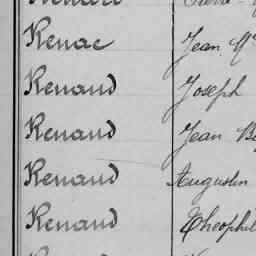 Renac Jean M
Renaud Joseph
Renaud Jean Ba
Renaud Augustin
Renaud Théophil